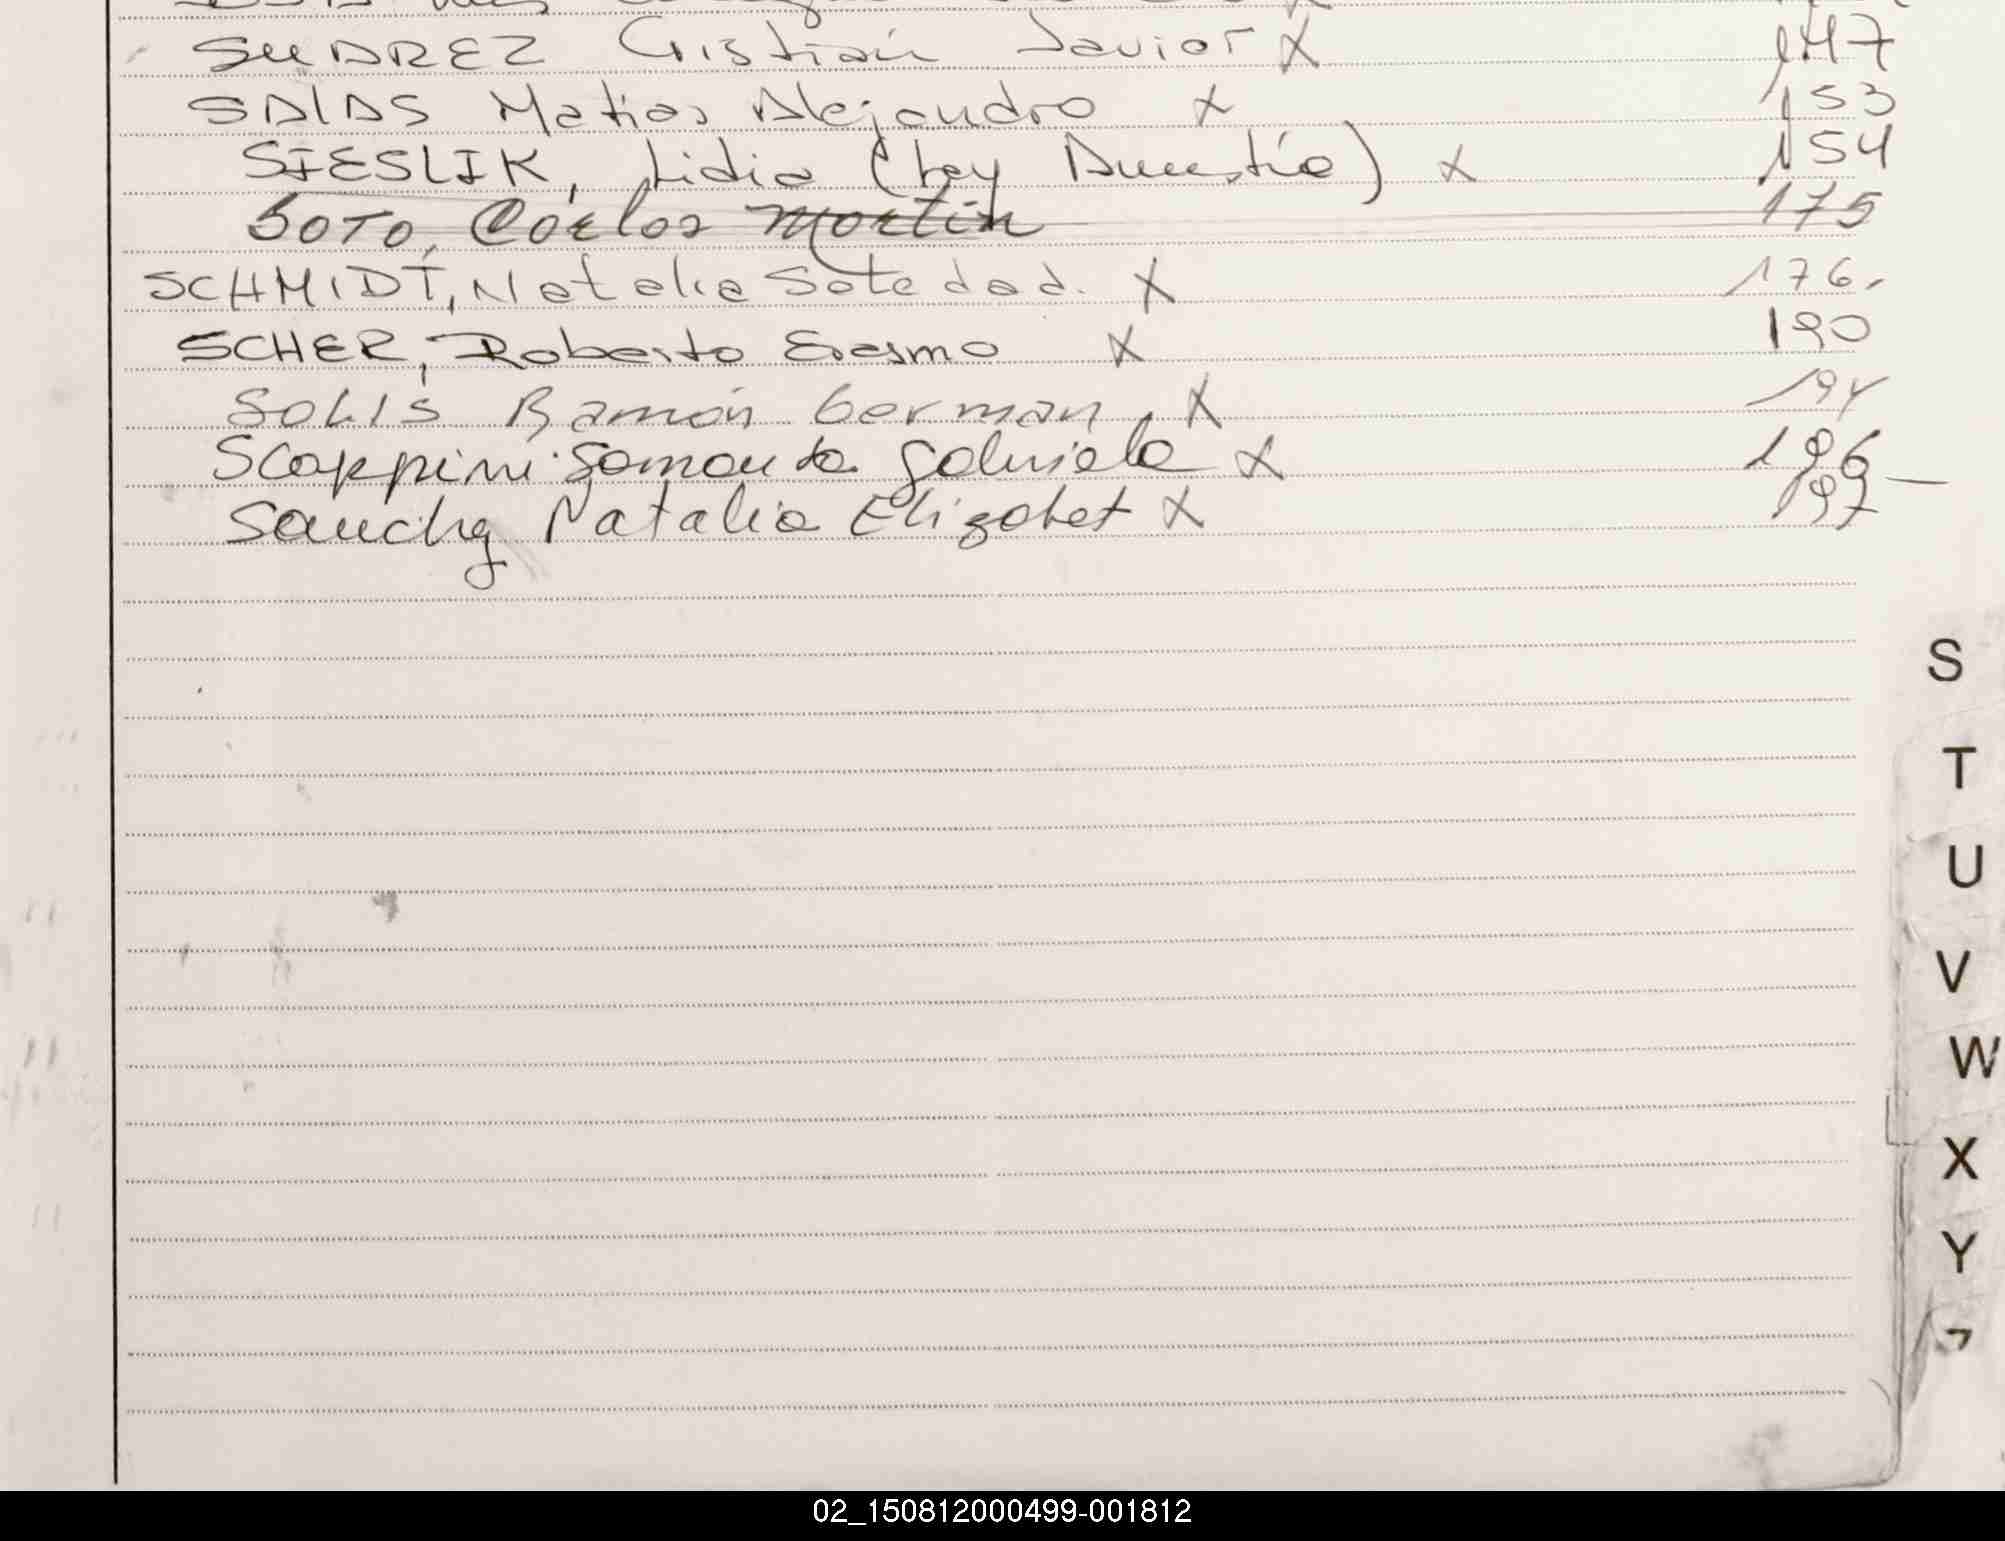 SUAREZ Cristian Javier X 147
SALAS Matias Alejandro X 153
SIESLIK, Lidia (Ley Amnistía) X 154
SOTO, Carlos Martin 175
SCHMIDT, Natalia Soledad. X 176.
SCHER, Roberto Erasmo X 190
SOLIS Ramón German X 194
Scappini Samanta Gabriela X 196
Sanchez Natalia Elizabet X 197
S
T
U
V
W
X
Y
02_150812000499-001812